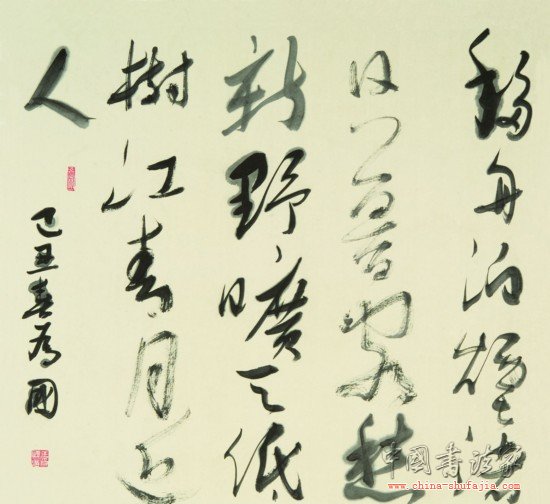 移舟泊煙渚
日暮客愁
新野曠天低
樹江清月近
人
己丑春為國
中國書法家
www.china-shufajia.com